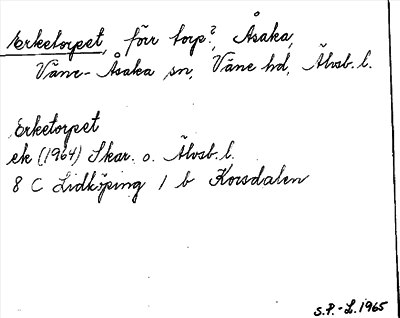 Erketorpet, förr torp?, Åsaka,
Väne-Åsaka sn, Väne hd, Älvsb. l.
Erketorpet
ek (1964) Skar. o. Älvsb. l.
8 C Lidköping 1 b Korsdalen
S.P.-L. 1965